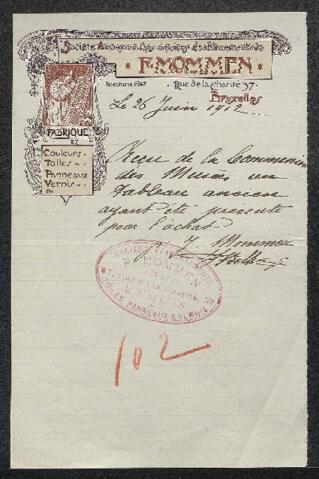 Société Anonyme des Anciens Établissements
F. MOMMEN
Téléphone 1947
Rue de la Charité 37
Bruxelles
FABRIQUE
DE
Couleurs
Toiles
Panneaux
Vernis
Le 26 Juin 1912
Recu de la Commission
des Musées un
Tableau ancien
ayant été présenté
pour l'achat
Mommen
MOMMEN
Rue de la Charité, 37
BRUXELLES
TOILES, PANNEAUX & VERNIS
102